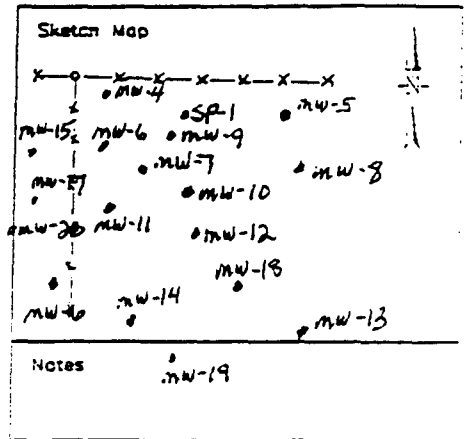 Sketch Map
N
MW-4
SP-1
MW-5
MW-15
MW-6
MW-9
MW-7
MW-8
MW-10
MW-11
MW-20
MW-12
MW-18
MW-14
MW-13
Notes
MW-19